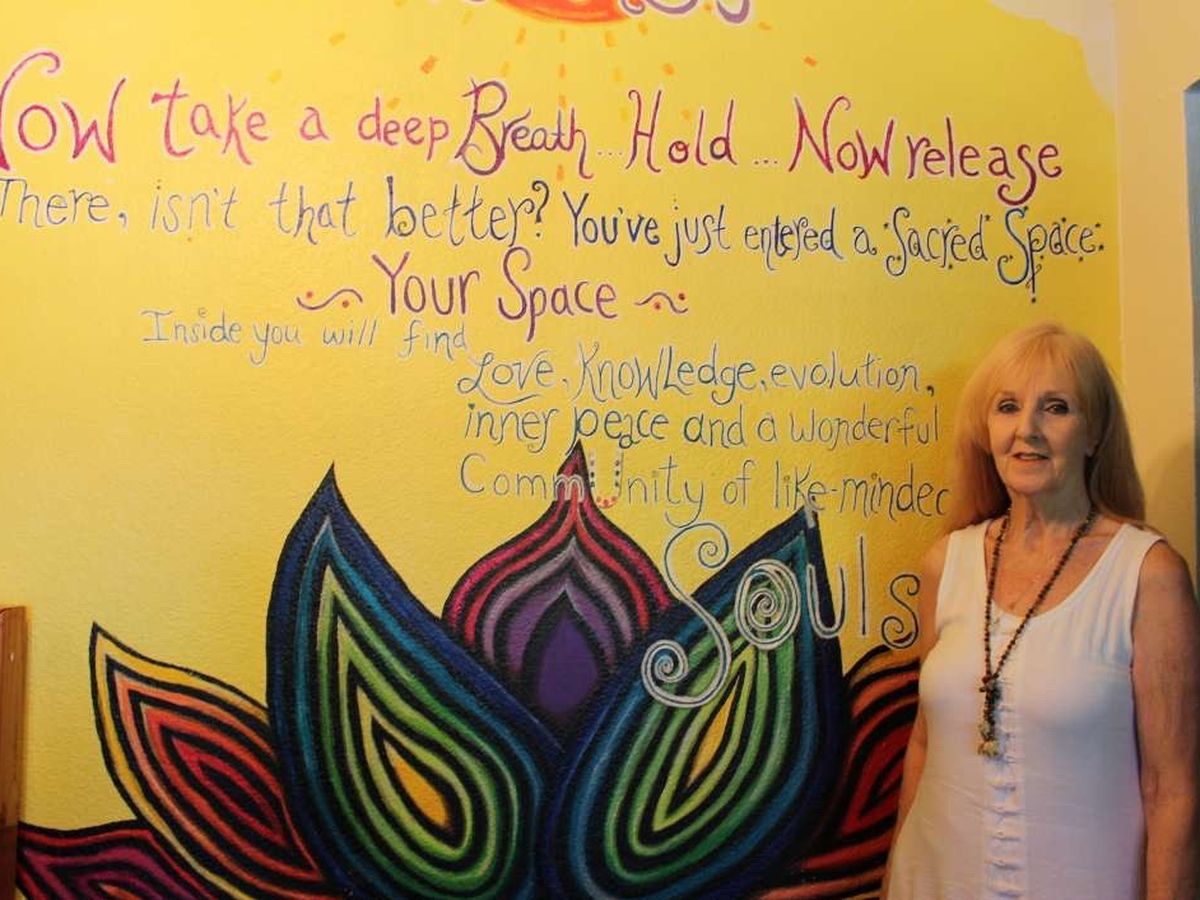 Now take a deep Breath...Hold...Now release
There, isn't that better? You've just entered a Sacred Space.
~ Your Space ~
Inside you will find
Love, Knowledge, evolution,
inner peace and a wonderful
CommUnity of like-minded
Souls